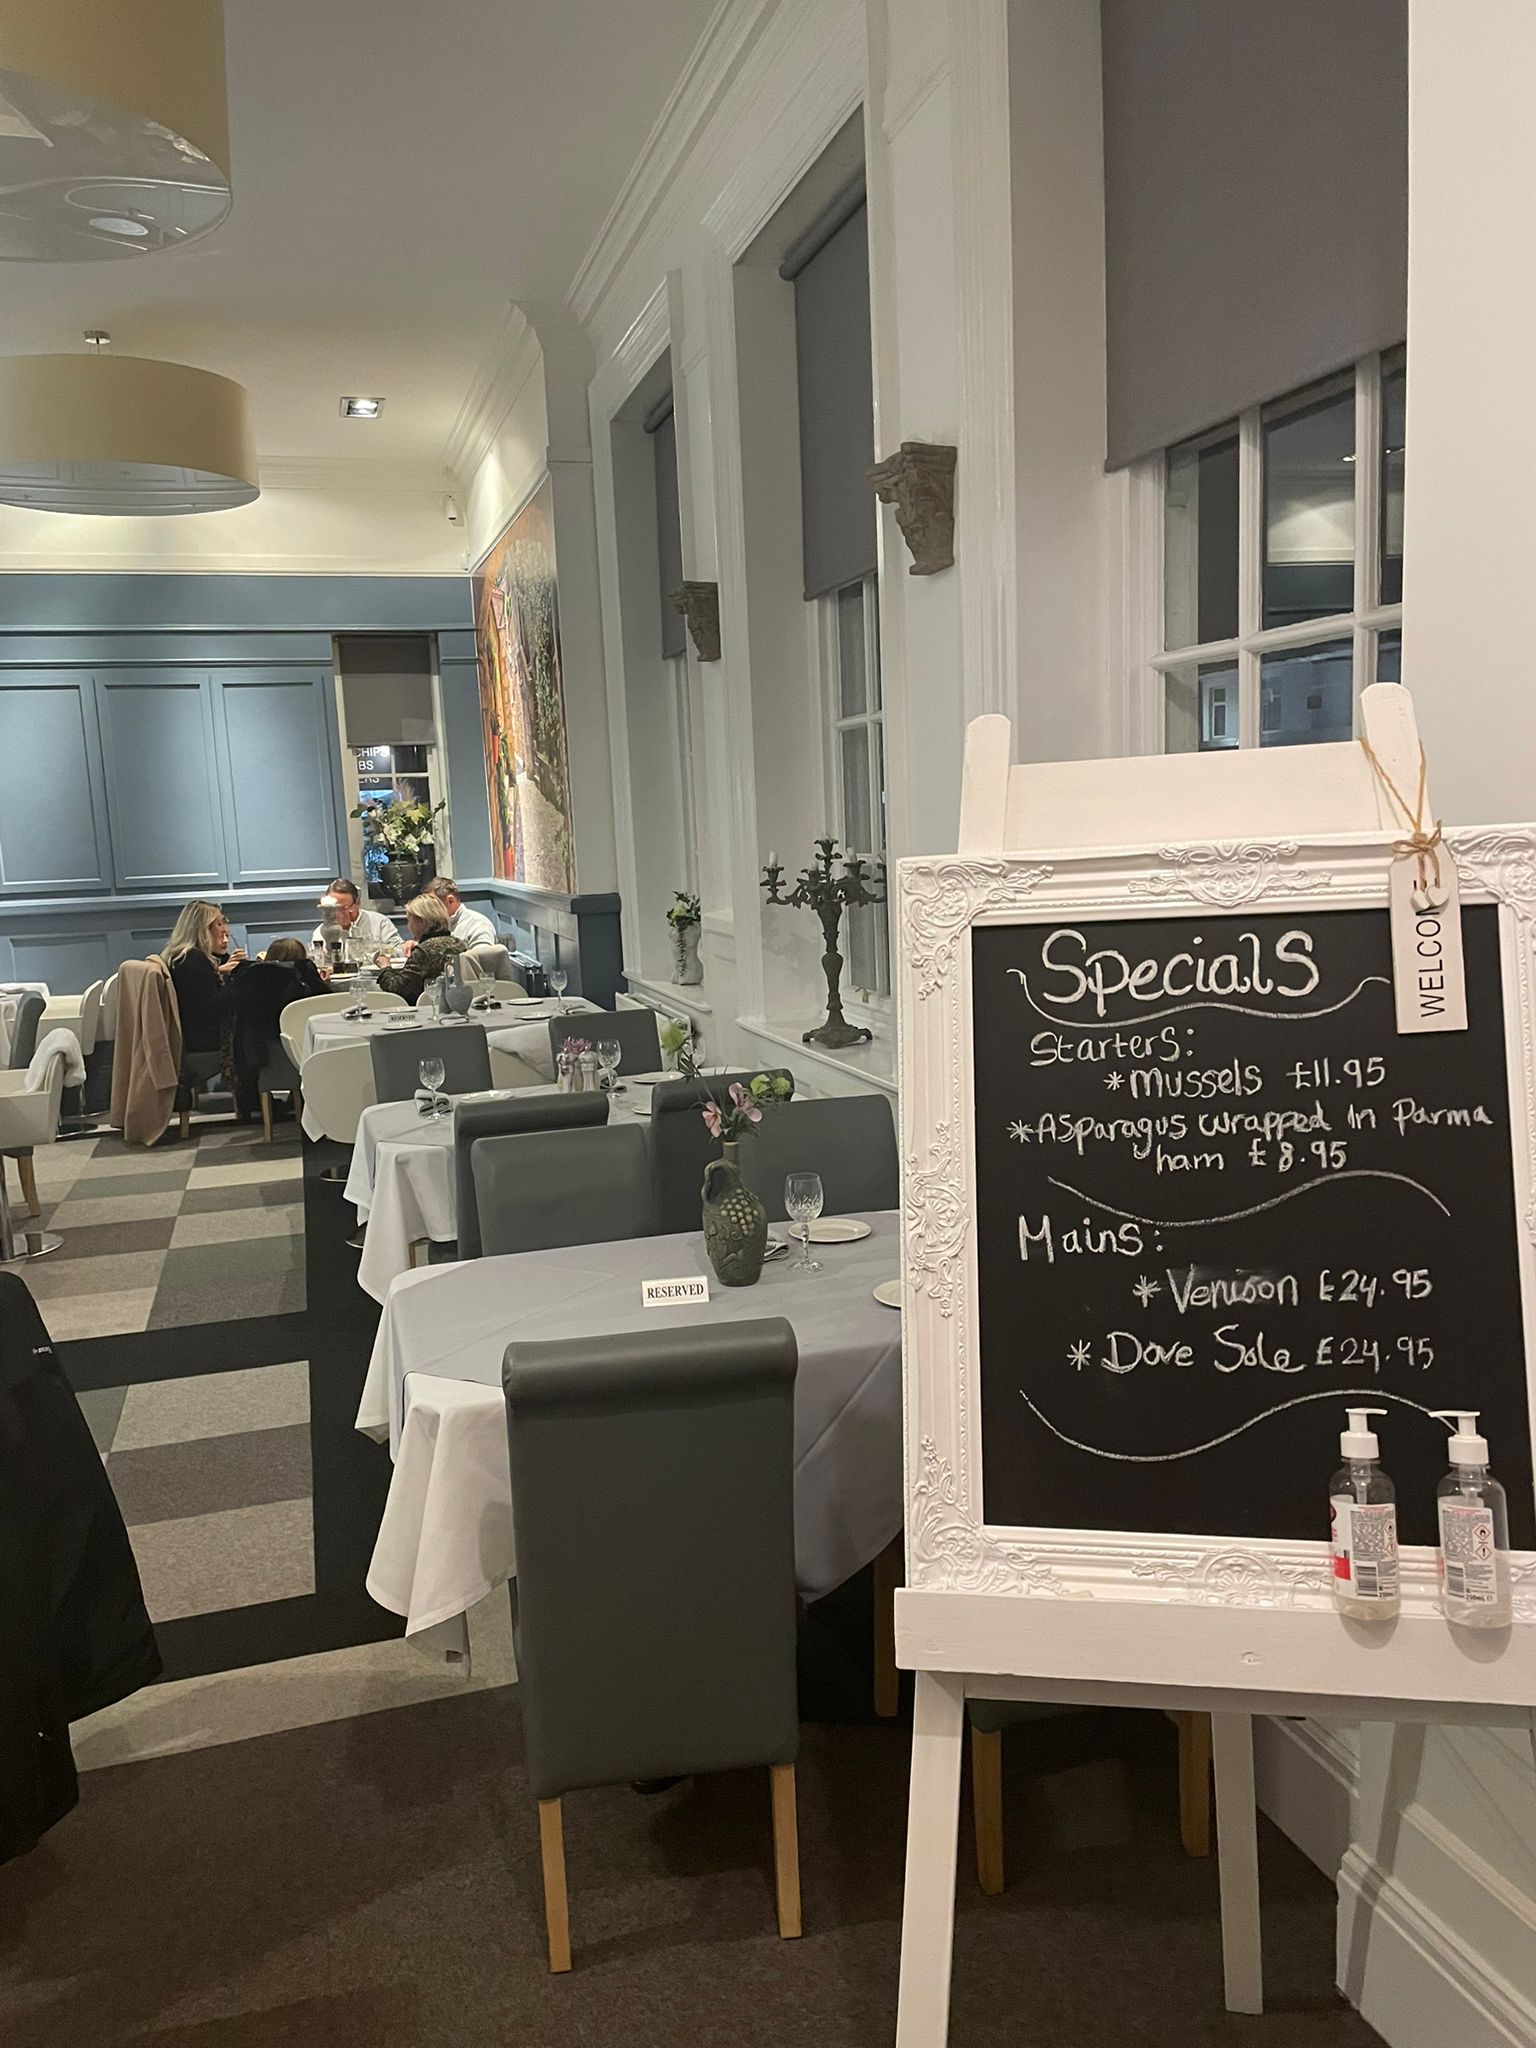 CHIPS
BS
ERS
RESERVED
RESERVED
WELCOM
Specials
Starters:
*Mussels £11.95
*Asparagus wrapped in Parma
ham £8.95
Mains:
*Venison £24.95
*Dove Sole £24.95
250mL